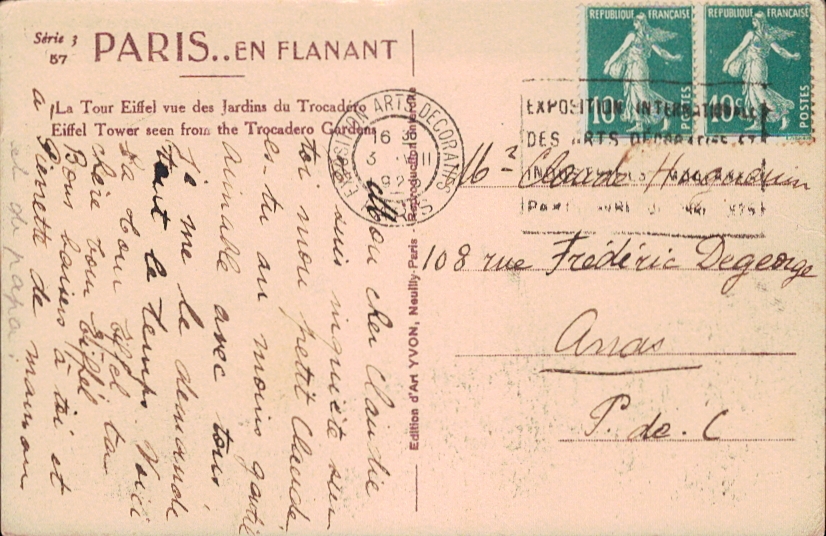 Série 3
57
PARIS..EN FLANANT
La Tour Eiffel vue des Jardins du Trocadéro
Eiffel Tower seen from the Trocadero Gardens
Mon cher Claudie
Je suis inquiète sur
toi mon petit Claude,
es-tu au moins gentil
aimable avec tous
Je me le demande
tout le temps. Voici
la tour Eiffel ta
chère tour Eiffel
Bons baisers à toi et
à Pierrette de maman
et de papa.
Edition d'Art YVON, Neuilly-Paris Reproduction interdite
REPUBLIQUE FRANÇAISE
10c
POSTES
REPUBLIQUE FRANÇAISE
10c
POSTES
EXPOSITION ARTS DECORATIFS
PARIS
16
3
EXPOSITION INTERNATIONALE
DES ARTS DECORATIFS ET
PARIS
Mr Claude
108 rue Frédéric Degeorge
Arras
P. de. C